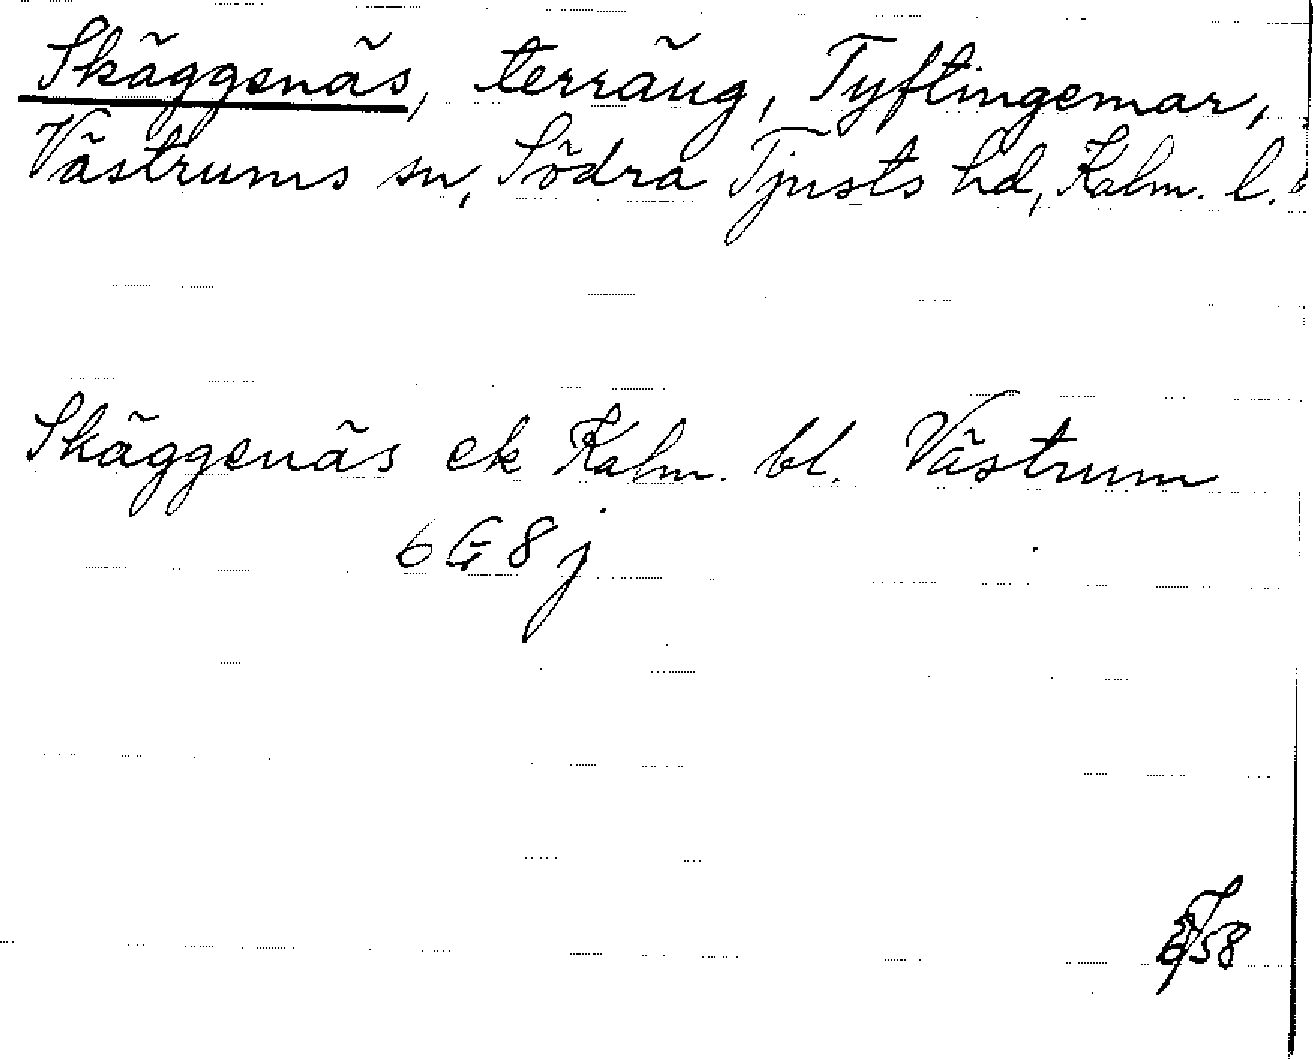 Skäggenäs, terräng, Tyftingemar,
Västrums sn, Södra Tjusts hd, Kalm. l.
Skäggenäs ek Kalm. bl. Västrum
6 G 8 j
58